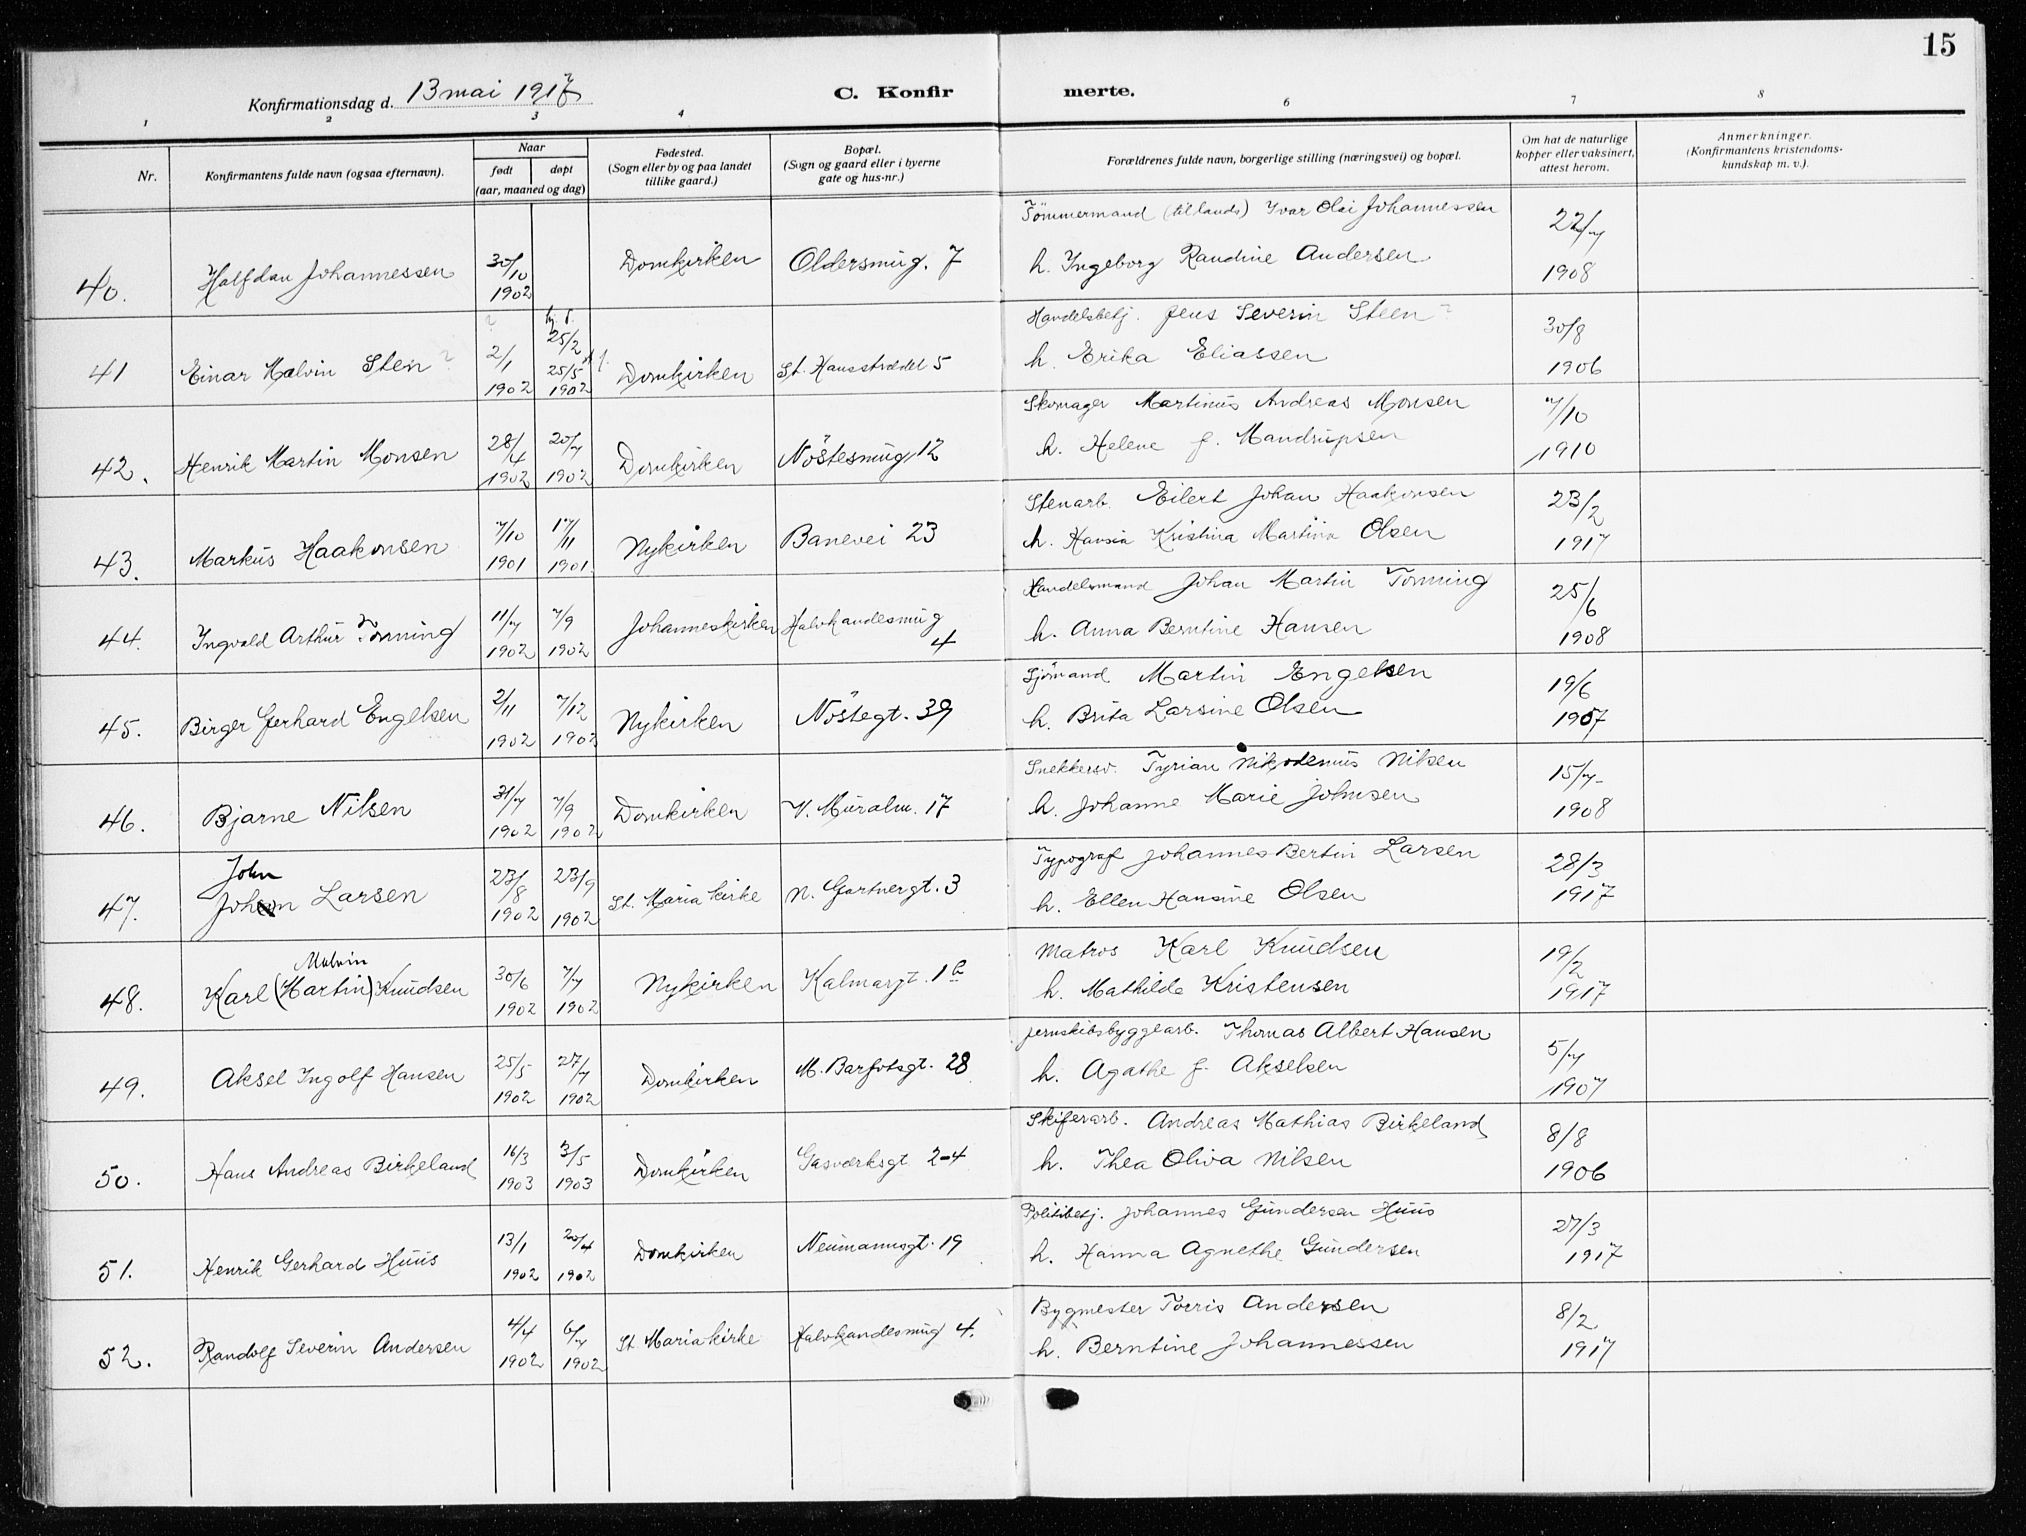 15
Konfirmationsdag d. 13 mai 1917
C. Konfir merte.
1 2 3 4 6 7 8
Nr.
Konfirmantens fulde navn (ogsaa efternavn).
Naar
født
døpt
(aar, maaned og dag)
Fødested.
(Sogn eller by og paa landet
tillike gaard.)
Bopæl.
(Sogn og gaard eller i byerne
gate og hus-nr.)
Forældrenes fulde navn, borgerlige stilling (næringsvei) og bopæl.
Om hat de naturlige
kopper eller vaksinert,
attest herom.
Anmerkninger.
(Konfirmantens kristendoms-
kundskap m. v.).
Tömmermand (tillands) Ivar Olai Johannessen
40. Halfdan Johannessen 30/10 1902 Domkirken Oldersmug. 7 h. Ingeborg Randine Andersen 22/7 1908
Handelsbetj. Jens Severin Steen ?
41 Einar Malvin Sten ? 2/1 1902 25/2 25/5 1902 Domkirken St. Hansstrædet 5 h. Erika Eliassen 30/8 1906
Skomager Martinus Andreas Monsen
42. Henrik Martin Monsen 28/4 1902 20/7 1902 Domkirken Nöstesmug 12 h. Helene f. Mandrupsen 7/10 1910
Stenarb. Eilert Johan Haakonsen
43. Markus Haakonsen 7/10 1901 17/11 1901 Nykirken Banevei 23 h. Hansia Kristina Martina Olsen 23/2 1917
Handelsmand Johan Martin Tonning
44. Ingvald Arthur Tonning 11/7 1902 7/9 1902 Johanneskirken Halvkandesmug 4 h. Anna Berntine Hansen 25/6 1908
Sjömand Martin Engelsen
45. Birger Gerhard Engelsen 2/11 1902 7/12 1902 Nykirken Nöstegt. 39 h. Brita Larsine Olsen 19/6 1907
Snekkersv. Tyrian Nikodemus Nilsen
46. Bjarne Nilsen 31/7 1902 7/9 1902 Domkirken V. Muralm. 17 h. Johanne Marie Johnsen 15/7 1908
Typograf Johannes Bertin Larsen
John
47. Johan Larsen 23/8 1902 23/9 1902 St. Maria kirke N. Gartnergt. 3 h. Ellen Hansine Olsen 28/3 1917
Matros Karl Knudsen
Malvin
48. Karl (Martin) Knudsen 30/6 1902 7/7 1902 Nykirken Kalmargt. 1 b h. Mathilde Kristensen 19/2 1917
Jernskibsbyggearb. Thomas Albert Hansen
49. Aksel Ingolf Hansen 25/5 1902 27/7 1902 Domkirken M. Barfotsgt. 28 h. Agathe f. Akselsen 5/7 1907
Skiferarb. Andreas Mathias Birkeland
50. Hans Andreas Birkeland 16/3 1903 3/5 1903 Domkirken Gasværksgt 2-4 h. Thea Oliva Nilsen 8/8 1906
Politibetj. Johannes Gundersen Huus
51. Henrik Gerhard Huus 13/1 1902 20/4 1902 Domkirken Neumannsgt. 19 h. Hanna Agnethe Gundersen 27/3 1917
Bygmester Torris Andersen
52. Randolf Severin Andersen 4/4 1902 6/7 1902 St. Mariakirke Halvkandesmug 4. h. Berntine Johannessen 8/2 1917